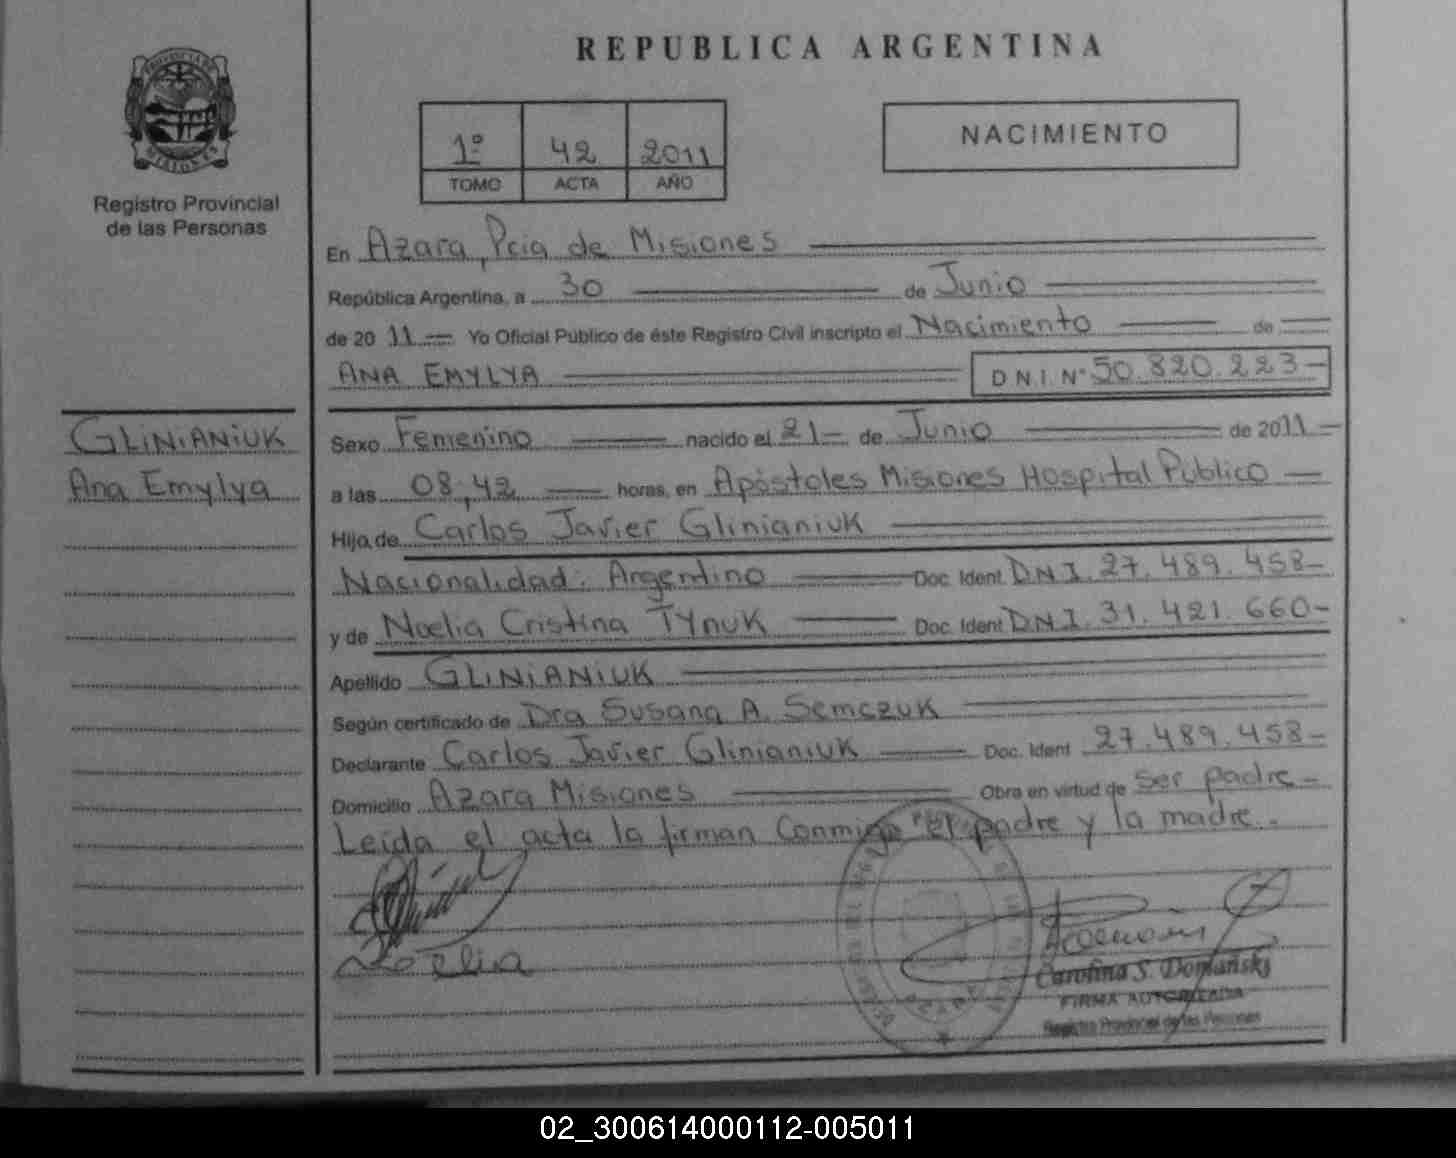 REPUBLICA ARGENTINA
PROVINCIA DE
MISIONES
Registro Provincial
de las Personas
1º 42 2011
TOMO ACTA AÑO
NACIMIENTO
En Azara, Pcia de Misiones
República Argentina, a 30 de Junio
de 2011 Yo Oficial Público de éste Registro Civil inscripto el Nacimiento de
ANA EMYLYA D N.I. N° 50.820.223-
GLINIANIUK
Ana Emylya
Sexo Femenino nacido el 21- de Junio de 2011-
a las 08,42 horas, en Apóstoles Misiones Hospital Publico
Hija de Carlos Javier Glinianiuk
Nacionalidad: Argentino Doc. Ident D.N.I. 27.489.458-
y de Noelia Cristina TYNUK Doc. Ident D.N.I. 31.421.660-
Apellido GLINIANIUK
Según certificado de Dra Susana A. Semczuk
Declarante Carlos Javier Glinianiuk Doc. Ident 27.489.458-
Domicilio Azara Misiones Obra en virtud de ser padre-
Leida el acta la firman Conmigo el padre y la madre.
Noelia
Carolina S. Domański
FIRMA AUTORIZADA
Registro Provincial de las Personas
02_300614000112-005011